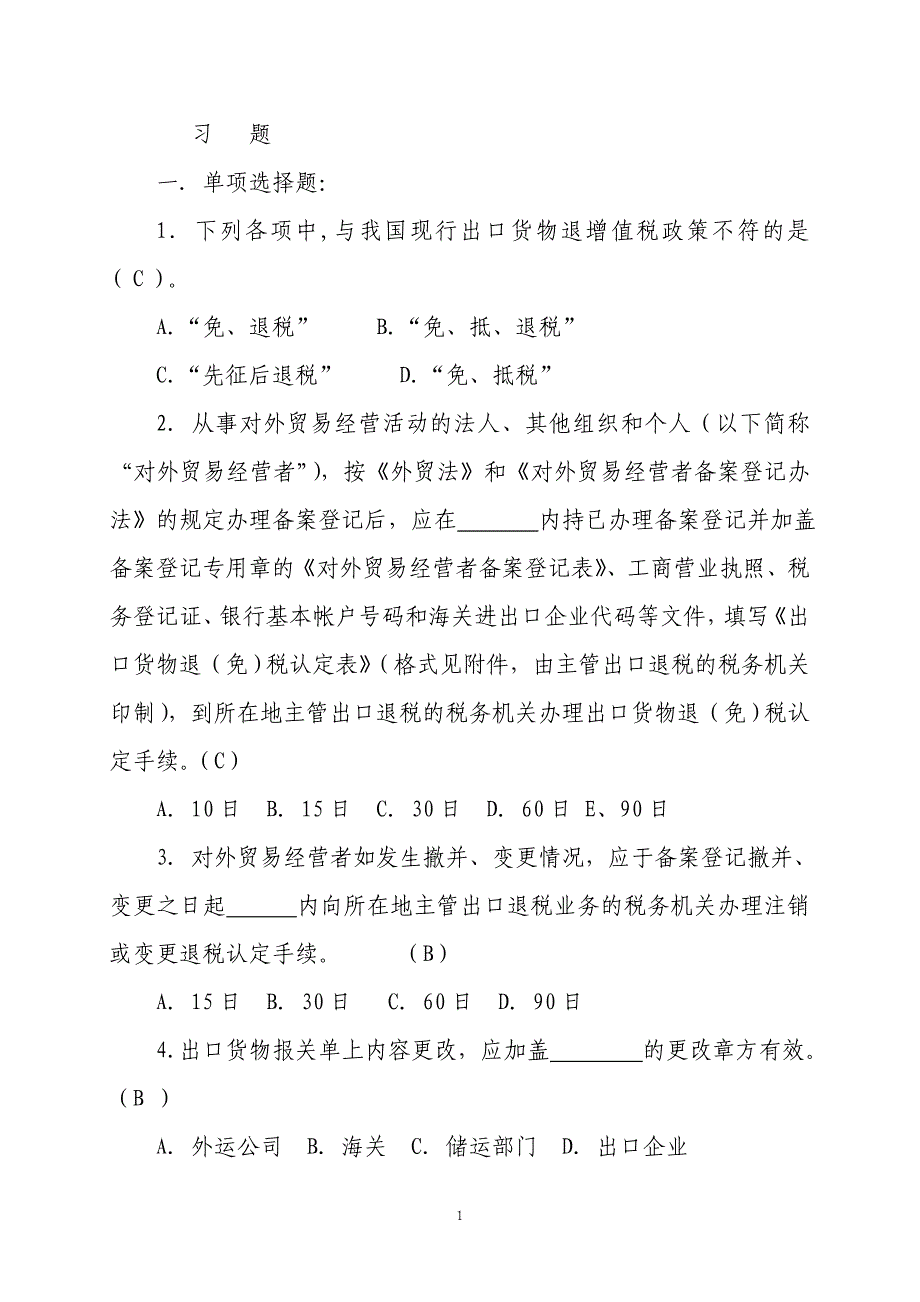 习　题
一．单项选择题：
1．下列各项中,与我国现行出口货物退增值税政策不符的是
（ C ）。
A.“免、退税”　　B.“免、抵、退税”
C.“先征后退税”　　D.“免、抵税”
2．从事对外贸易经营活动的法人、其他组织和个人（以下简称
“对外贸易经营者”），按《外贸法》和《对外贸易经营者备案登记办
法》的规定办理备案登记后，应在_______内持已办理备案登记并加盖
备案登记专用章的《对外贸易经营者备案登记表》、工商营业执照、税
务登记证、银行基本帐户号码和海关进出口企业代码等文件，填写《出
口货物退（免）税认定表》（格式见附件，由主管出口退税的税务机关
印制），到所在地主管出口退税的税务机关办理出口货物退（免）税认
定手续。（C）
A. 10日 B. 15日 C. 30日 D. 60日 E、90日
3．对外贸易经营者如发生撤并、变更情况，应于备案登记撤并、
变更之日起______内向所在地主管出口退税业务的税务机关办理注销
或变更退税认定手续。　　（B）
A. 15日 B. 30日 C. 60日 D. 90日
4.出口货物报关单上内容更改，应加盖________的更改章方有效。
（B ）
A. 外运公司 B. 海关 C. 储运部门 D. 出口企业
1